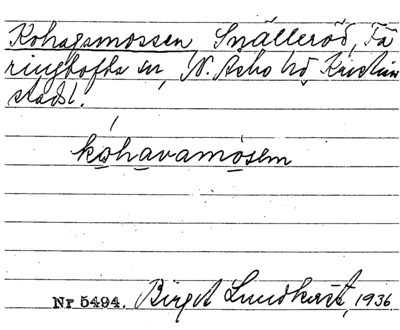 Kohagsmossen Snälleröd, Fä
ringtofta sn, N. Åsbo hd Kristian
stads l.
kohavamosem
Nr 5494. Birgit Lundkvist, 1936